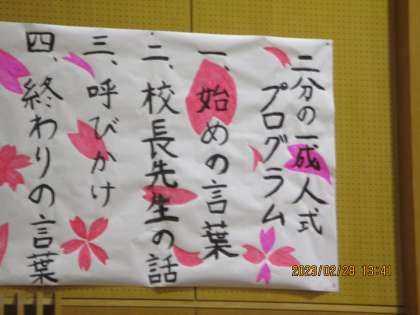 二分の一成人式
プログラム
一、始めの言葉
二、校長先生の話
三、呼びかけ
四、終わりの言葉
2023/02/28 13:41